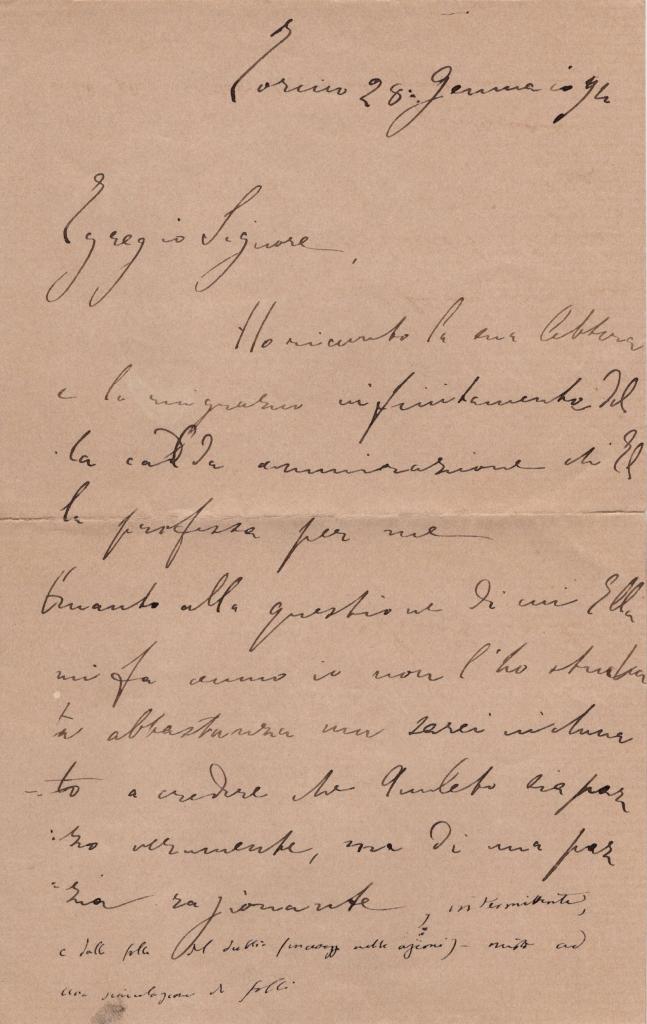 Torino 28: Gennaio 94
Egregio Signore,
Ho ricevuto la sua lettera
e la ringrazio infinitamente del
la calda ammirazione che El
la professa per me
Quanto alla questione di cui Ella
mi fa cenno io non l'ho studia
ta abbastanza ma sarei inclina
to a credere che Amleto sia paz
zo veramente, ma di una paz
zia ragionante, intermittente,
e della follia del dubbio (incesogg nelle azioni) - misto ad
una simulazione di follia